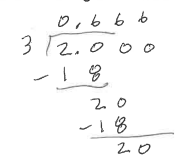 0.666
3 2.000
- 18
20
- 18
20